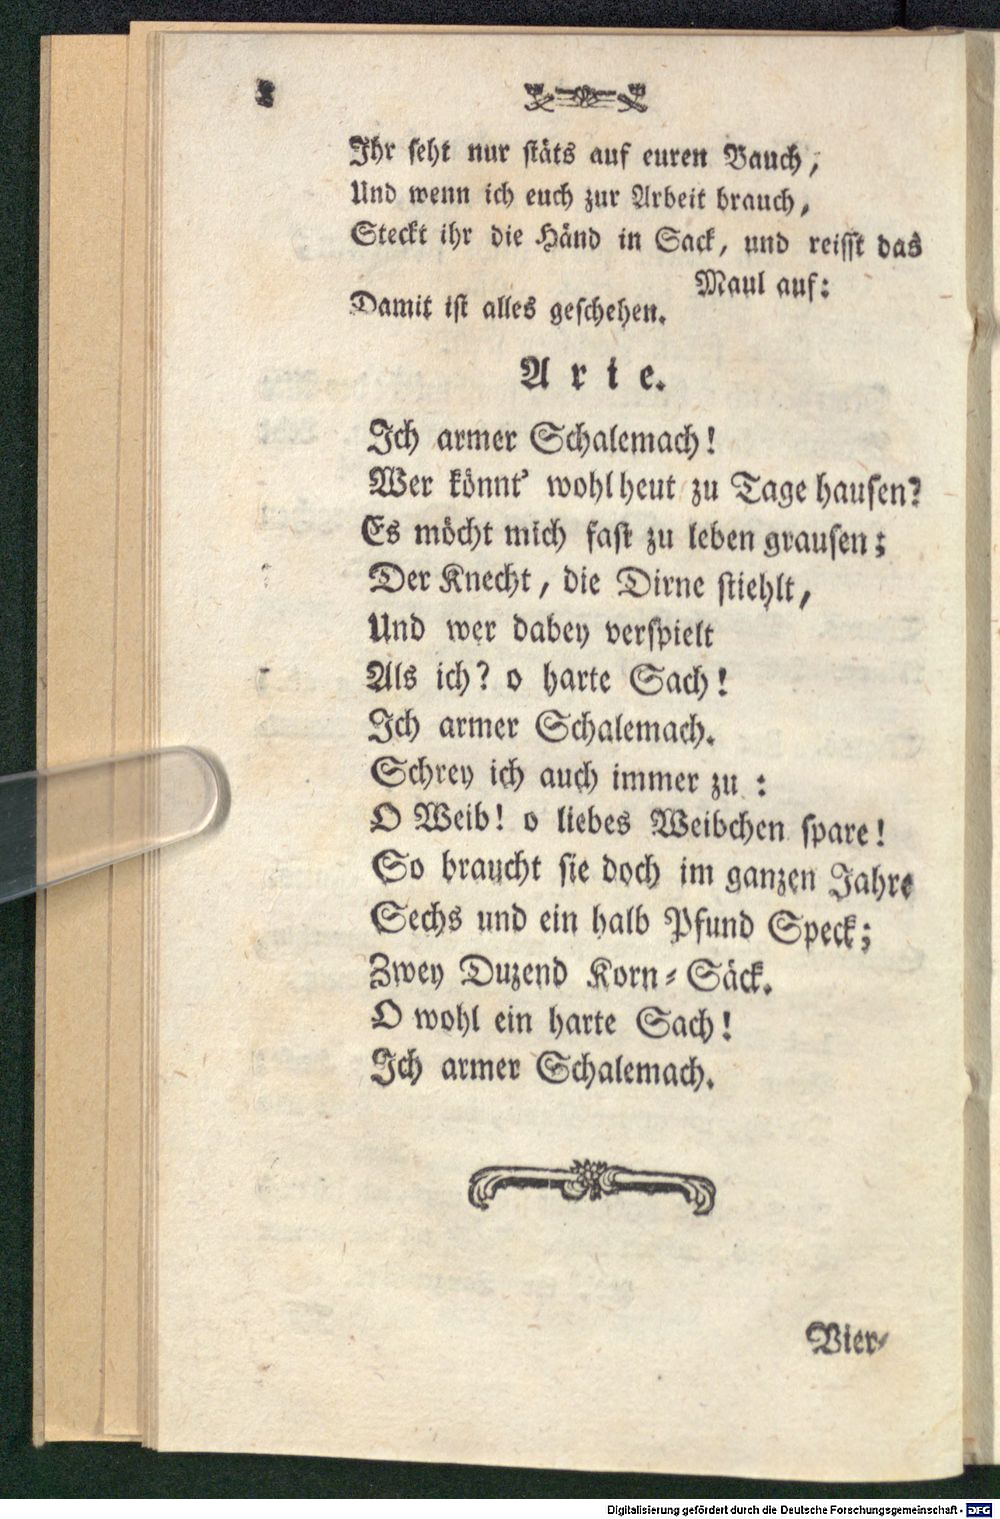 8
Ihr seht nur stäts auf euren Bauch,
Und wenn ich euch zur Arbeit brauch,
Steckt ihr die Händ in Sack, und reisst das
Maul auf:
Damit ist alles geschehen.
Arie.
Ich armer Schalemach!
Wer könnt' wohl heut zu Tage hausen?
Es möcht mich fast zu leben grausen;
Der Knecht, die Dirne stiehlt,
Und wer dabey verspielt
Als ich? o harte Sach!
Ich armer Schalemach.
Schrey ich auch immer zu :
O Weib! o liebes Weibchen spare!
So braucht sie doch im ganzen Jahre
Sechs und ein halb Pfund Speck;
Zwey Duzend Korn-Säck.
O wohl ein harte Sach!
Ich armer Schalemach.
Vier-
Digitalisierung gefördert durch die Deutsche Forschungsgemeinschaft - DFG